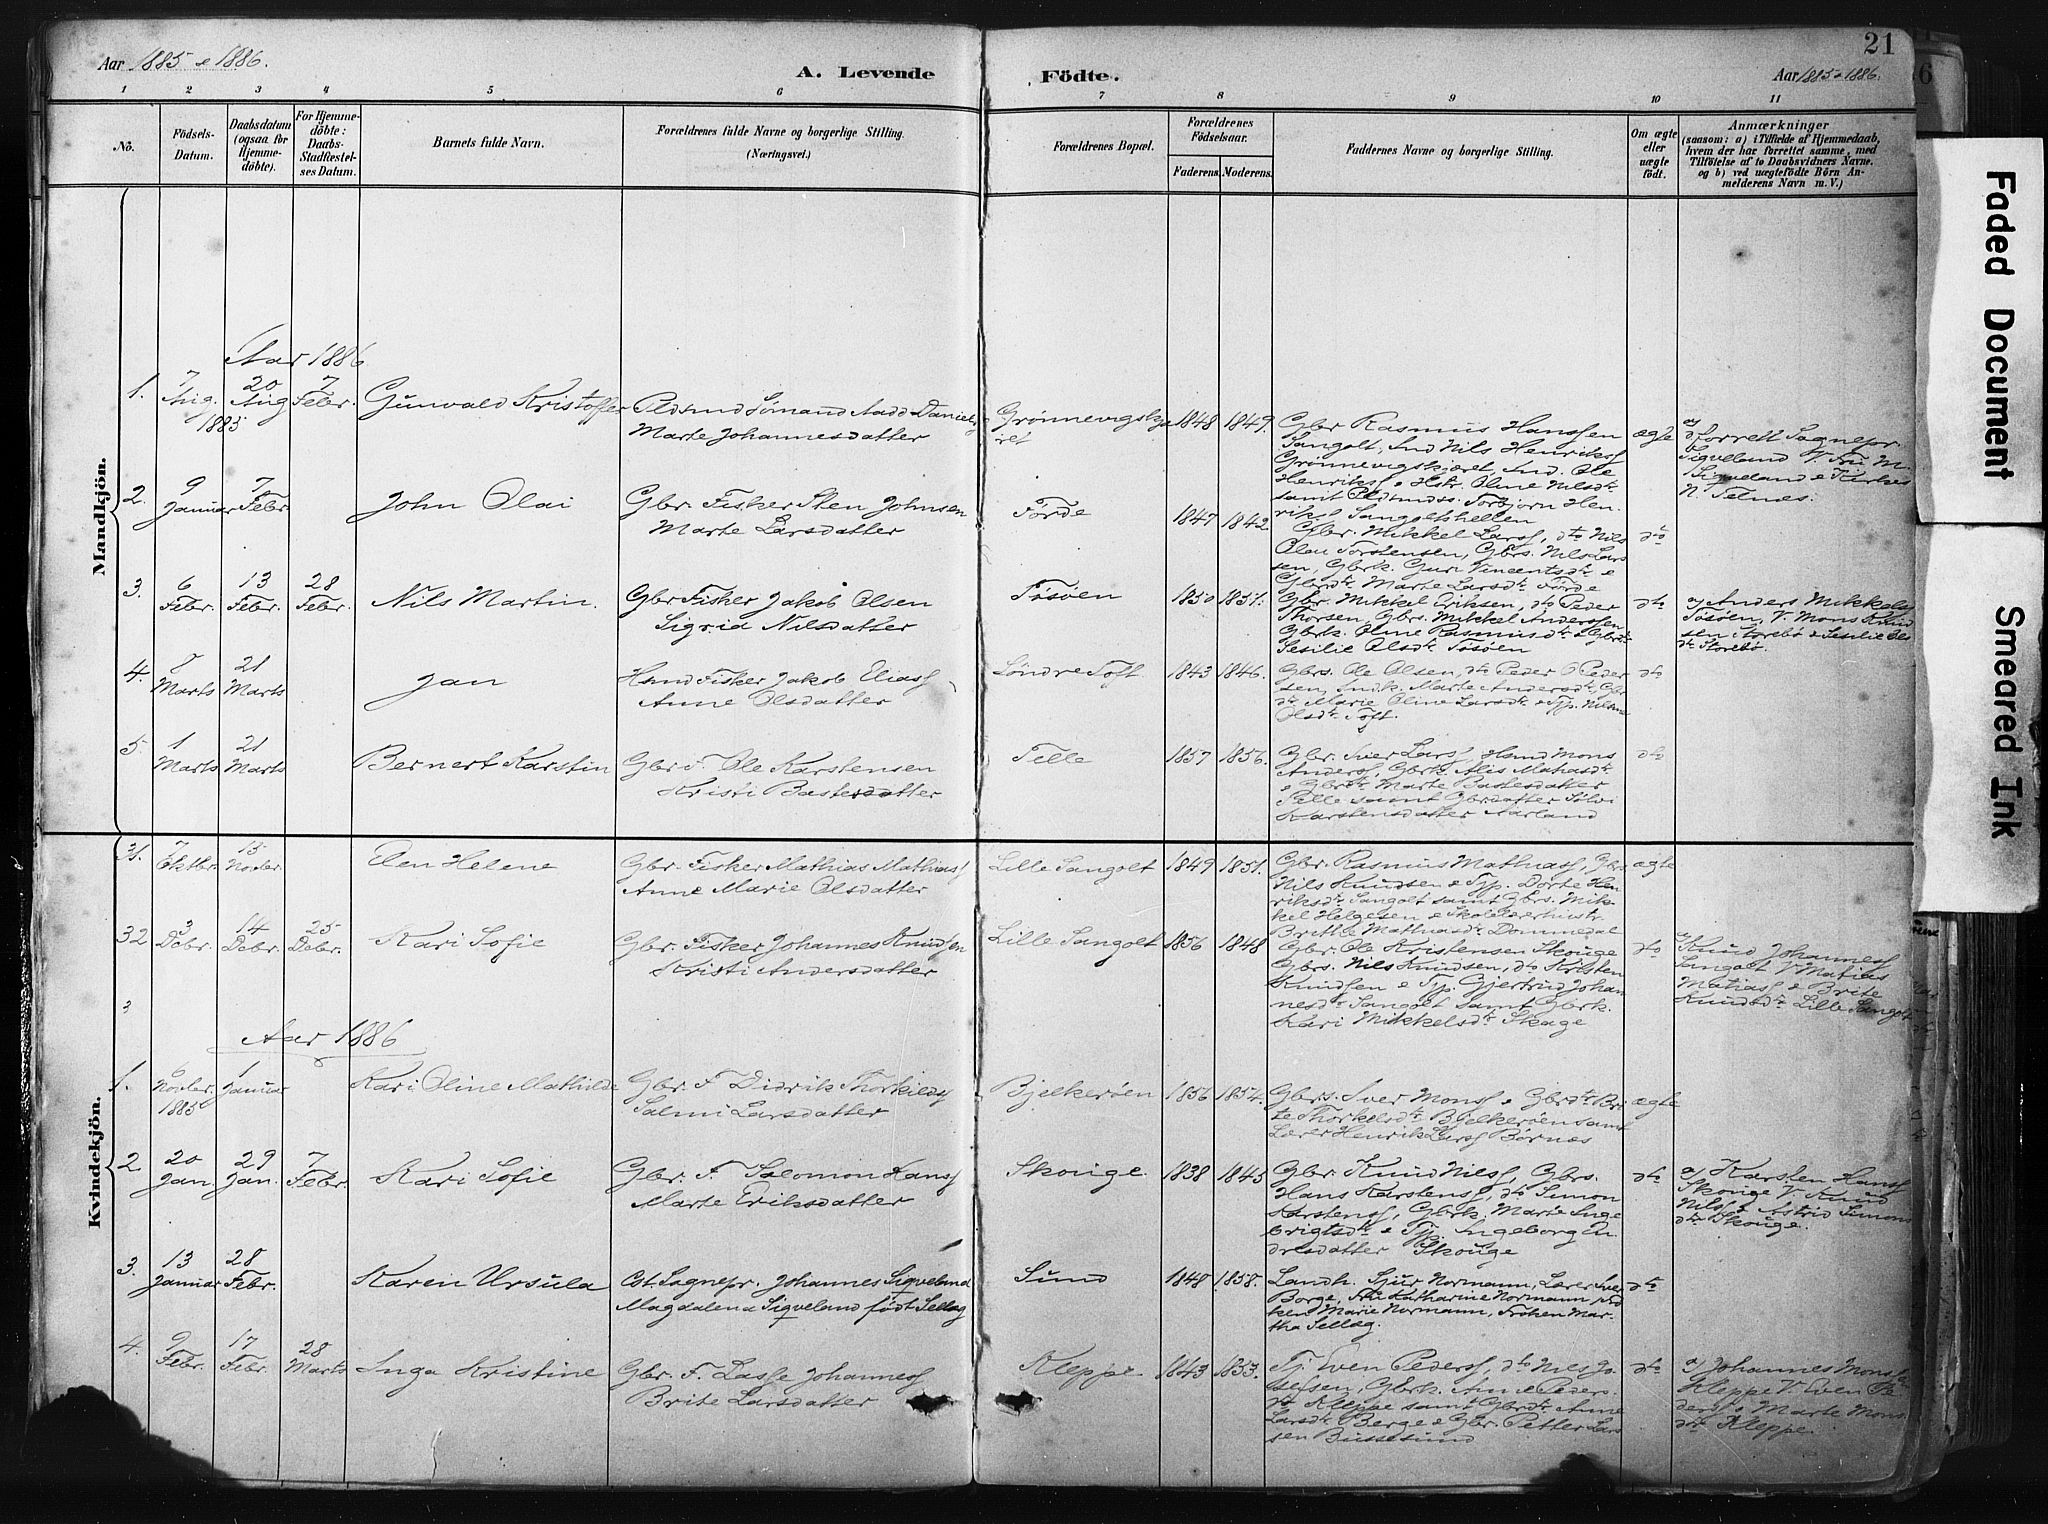 Aar 1885 & 1886.
A. Levende
Födte.
Aar 1885 & 1886.
21
1 2 3 4 5 6 7 8 9 10 11
No.
Födsels-
Datum.
Daabsdatum
(ogsaa for
Hjemme-
döbte).
For Hjemme-
döbte:
Daabs-
Stadfæstel-
ses Datum.
Barnets fulde Navn.
Forældrenes fulde Navne og borgerlige Stilling.
(Næringsvei.)
Forældrenes Bopæl.
Forældrenes
Födselsaar.
Faderens. Moderens.
Faddernes Navne og borgerlige Stilling.
Om ægte
eller
uægte
födt.
Anmærkninger
(saasom: a) i Tilfælde af Hjemmedaab,
hvem der har forrettet samme, med
Tilföielse af to Daabsvidners Navne.
og b) ved uægtefödte Börn An-
melderens Navn m. V.)
Mandkjön.
Aar 1886
1.
7
Aug.
1885
20
Aug
7
Febr.
Gunvald Kristoffer
Pldsmd Sømand Aad Daniels
Marte Johannesdatter
Grønnevigskjæ
ret
1848 1849.
Gbr Rasmus Hanssen
Sangolt, Ind Nils Henriks
Grønnevigskjæret, Ind. Ole
Henriks & Hstr. Oline Nilsdt
samt Pldsmdss. Torbjørn Hen
riks Sangoltshellen
ægte
a) forrett Sognepr.
Sigveland V. Fru M.
Sigveland & Kirkes
N Telnes.
2.
9
Januar
7
Febr.
John Olai
Gbr. Fisker Sten Johnsen
Marte Larsdatter
Førde
1847 1842
Gbr. Mikkel Lars, dto Nils
Olau Torstensen, Gbrs. Nils Lars
sen, Gbrk. Guri Vincentsdtr &
Gbrdtr Marte Larsdtr Førde
dto
3.
6
Febr.
13
Febr.
28
Febr.
Nils Martin.
Gbr Fisker Jakob Olsen
Sigrid Nilsdatter
Tøsøen
1850 1857.
Gbr. Mikkel Eriksen, dto Peder
Thorsen, Gbrs. Mikkel Anderssen
Gbrk. Oline Rasmusdtr & Gbrdtr
Sesilie Olsdtr Tøsøen
dto
a) Anders Mikkels
Tøsøen, V. Mons Knud
sen Storebø & Sesilie Ols
dtr Storebø.
4.
8
Marts
21
Marts
Jan
Hsmd Fisker Jakob Elias
Anne Olsdatter
Søndre Toft
1843 1846.
Gbrs. Ole Olsen, dto Peder O Peder
sen, Indk. Marte Andersdtr Gbr
dtr Marie Oline Larsdtr & Typ. Nilsine
Olsdtr Toft.
dto
5.
1
Marts
21
Marts
Bernert Karstin
Gbr F. Ole Karstensen
Kristi Bastesdatter
Telle
1857 1856.
Gbr. Iver Lars, Hsmd Mons
Anders, Gbrk. Alis Mathiasdtr
& Gbrdtr Marte Bastesdatter
Telle samt Gbrdatter Sølvi
Karstensdatter Aarland
dto
Kvindekjön.
31.
7
Oktbr.
15
Novbr.
Elen Helene
Gbr. Fisker Mathias Mathias
Anne Marie Olsdatter
Lille Sangolt
1849 1851.
Gbr. Rasmus Mathias, Gbr
Nils Knudsen & Typ. Dorte Hen
riksdtr Sangolt samt Gbrs. Mik
kel Helgesen & Skolelærerhustr.
Britte Mathiasdtr Dommedal
ægte
32
3
Debr.
14
Debr.
25
Debr.
Kari Sofie
Gbr. Fisker Johannes Knudsen
Kristi Andersdatter
Lille Sangolt
1856 1848
Gbr. Ole Kristensen Skouge
Gbrs. Nils Knudsen, dto Kristen
Knudsen & Typ. Gjertrud Johan
nesdtr Sangolt samt Gbrk.
Kari Mikkelsdtr Skage
dto
a) Knud Johannes
Sangolt V Matias
Matias & Brite
Knudsdtr Lille Sangolt
3
Aar 1886
1.
6
Novbr.
1885
1
Januar
Kari Oline Mathilde
Gbr. F Didrik Thorkilds
Salmi Larsdatter
Bjelkerøen
1856 1854.
Gbrs. Iver Mons & Gbrdtr Bri
te Thorkelsdtr Bjelkerøen samt
Lærer Henrik Lars Børnæs
ægte
2
20
Jan.
29
Jan.
7
Febr.
Kari Sofie
Gbr. F. Salomon Hans
Marte Eriksdatter
Skouge.
1838 1845
Gbr. Knud Nils, Gbrs.
Hans Karstens, dto Simon
Karstens, Gbrk. Marte Inge
brigtsdtr & Typ. Ingeborg An
dresdatter Skouge
dto
a) Karsten Hans
Skouge V Knud
Nils & Astrid Simons
dtr Skouge.
3.
13
Januar
28
Febr.
Karen Ursula
Cst Sognepr. Johannes Sigveland
Magdalena Sigveland født Selleg
Sund
1848 1858.
Landh. Sjur Normann, Lærer Iver
Borge, Fru Katharine Normann, frø
ken Marie Normann, Frøken Mar-
tha Selleg.
dto
4.
9
Febr.
17
Febr.
28
Marts
Inga Kristine
Gbr. F. Lasse Johannes
Brite Larsdatter
Kleppe
1843 1853.
Tj Even Peders, dto Nils Jo
sefsen, Gbrk. Anne Peders
dtr Kleppe samt Gbrdtr Anne
Larsdtr Berge & Gbr. Petter Lars
sen Bussesund
dto
a) Johannes Mons
Kleppe V. Even Pe
ders & Marte Mons
dtr Kleppe.
Faded Document
Smeared Ink